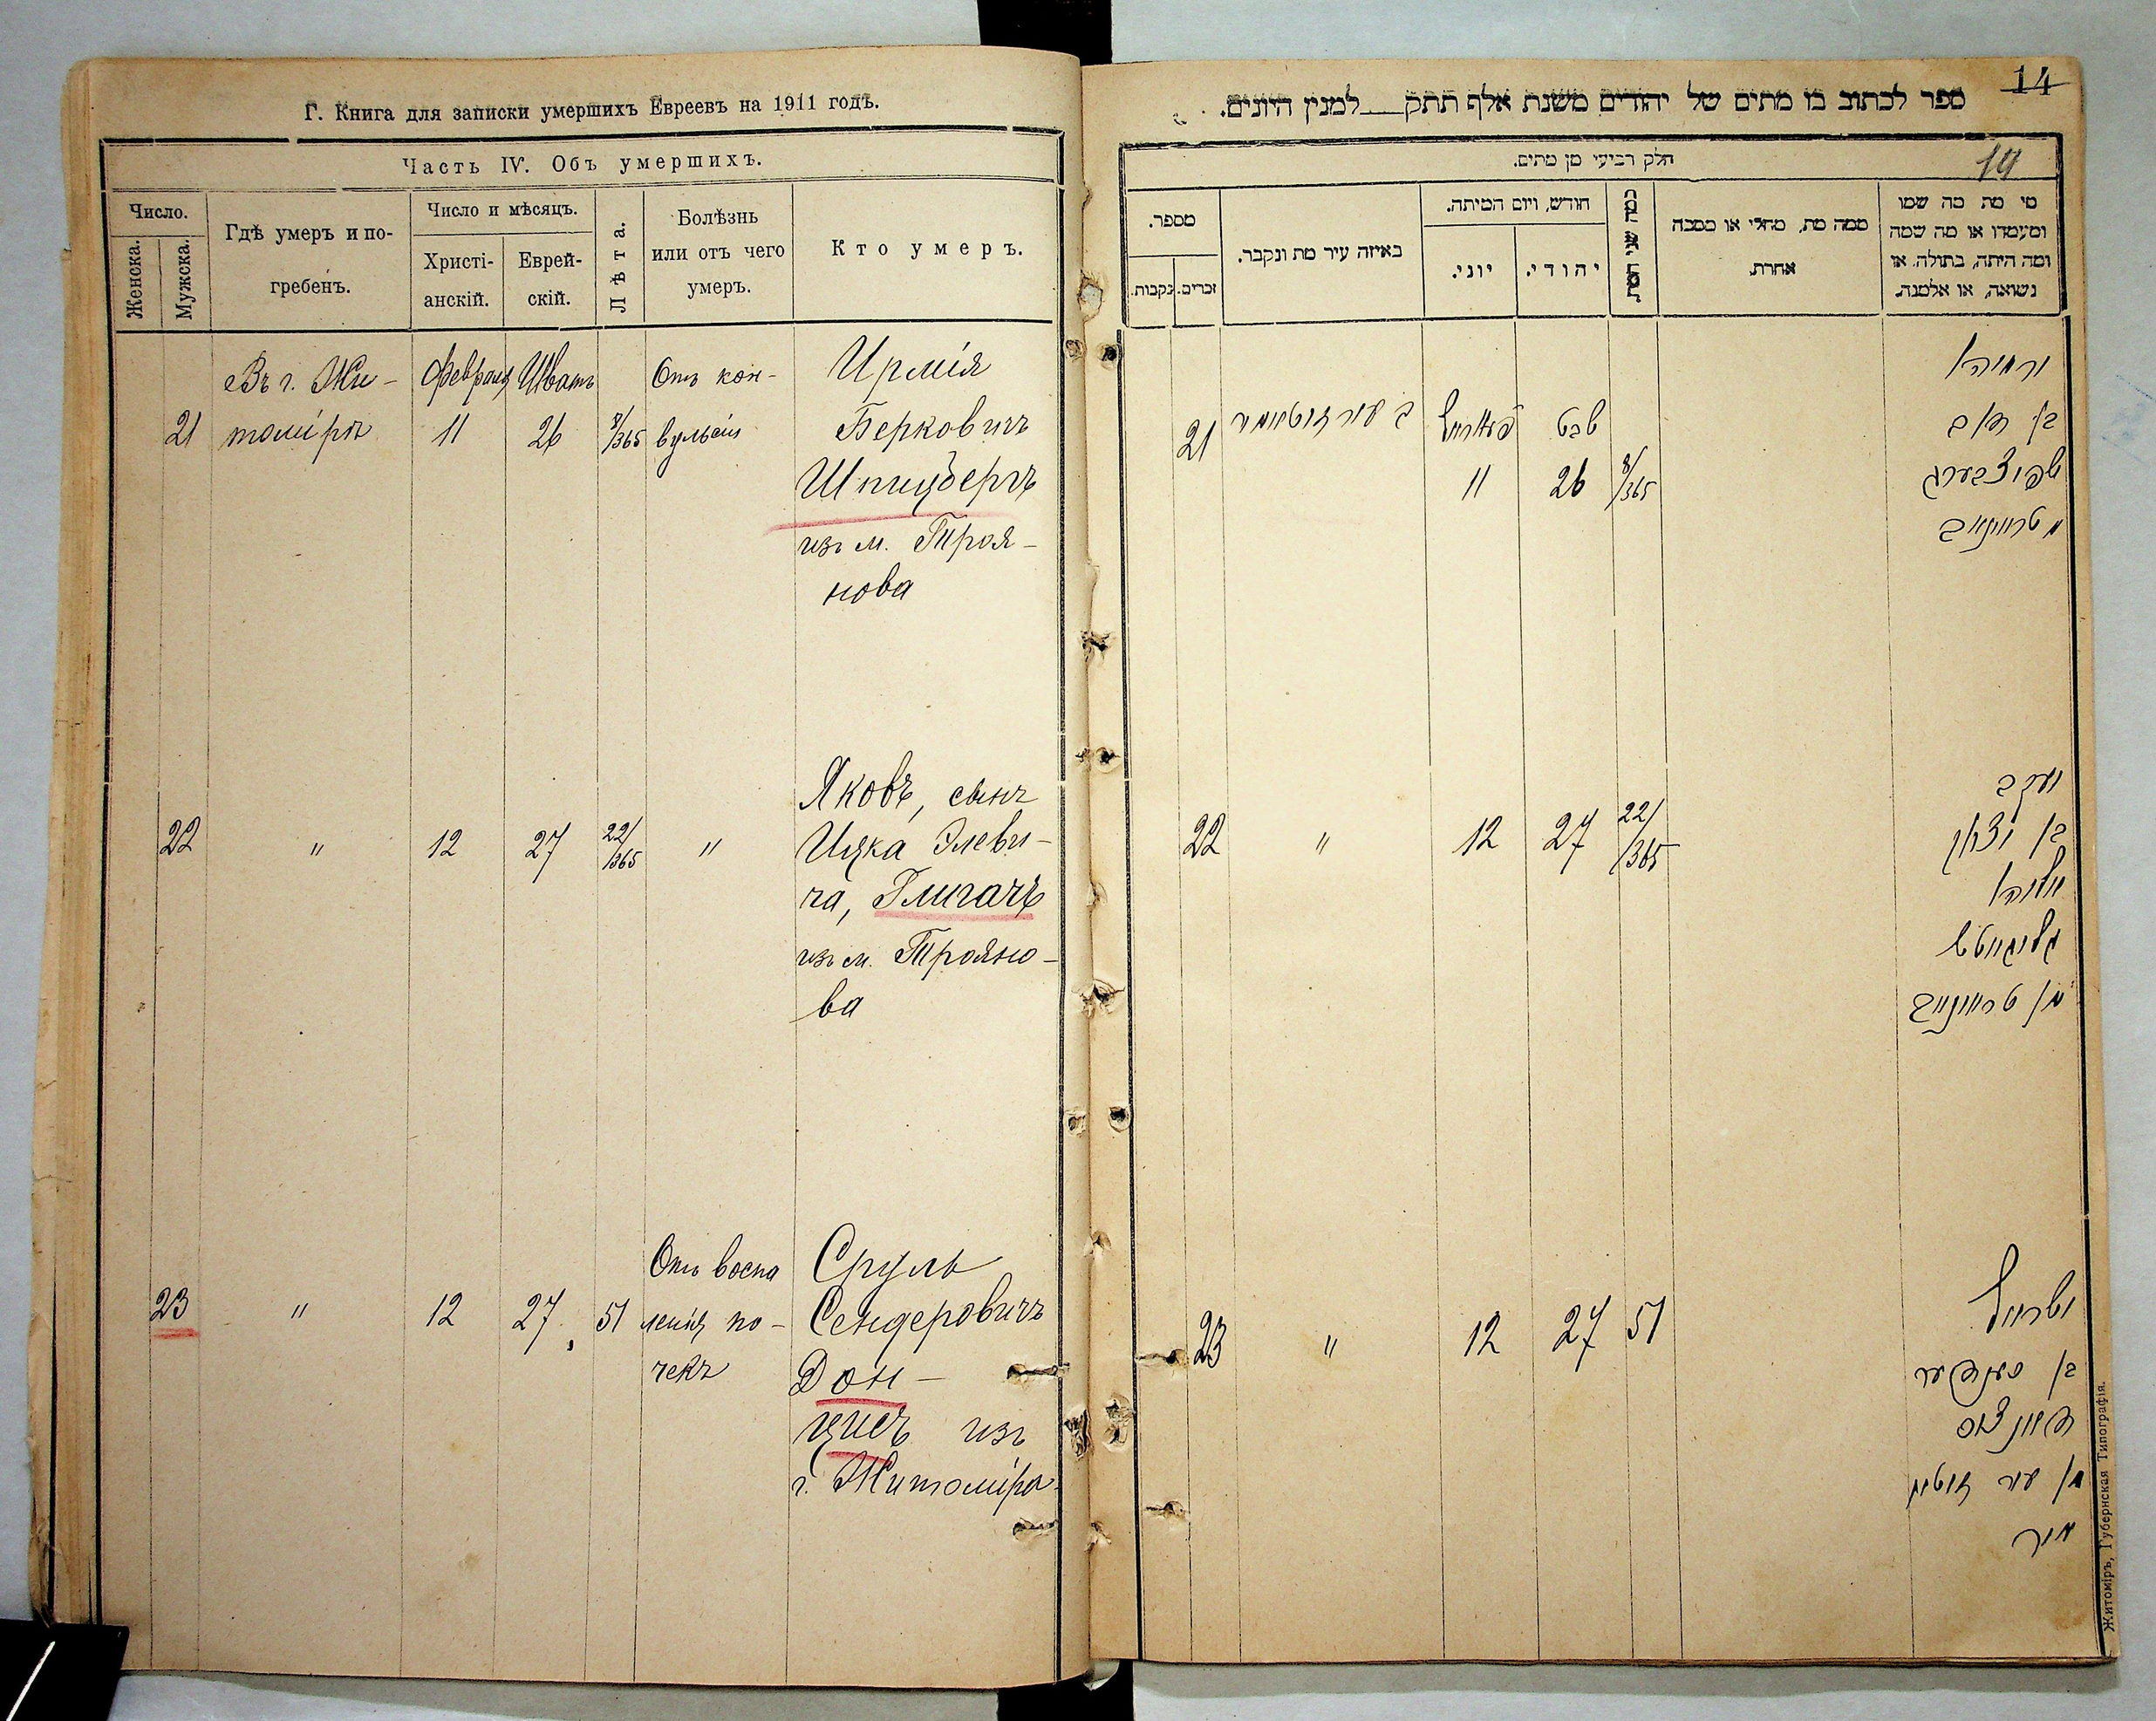 Г. Книга для записки умершихъ Евреевъ на 1911 годъ.
Часть IV. Объ умершихъ.
Число.
Женска.
Мужска.
Гдѣ умеръ и по-
гребенъ.
Число и мѣсяцъ.
Христі-
анскій.
Еврей-
скій.
Лѣта.
Болѣзнь
или отъ чего
умеръ.
Кто умеръ.
21
Въ г. Жи-
томірѣ
Февраля
11
Шватъ
26
8/365
Отъ кон-
вульсіи
Ирмія
Берковичъ
Шпицбергъ
изъ м. Троя-
нова
22
"
12
27
22/365
"
Яковъ, сынъ
Ицка Элеви-
ча, Глигачъ
изъ м. Трояно-
ва
23
"
12
27
51
Отъ воспа
ленія по-
чекъ
Сруль
Сендеровичъ
Дон-
цисъ изъ
г. Житоміра
14
ספר לכתוב בו מתים של יהודים משנת אלף תתק למנין היונים.
19
חלק רביעי מן מתים.
מספר.
נקבות.
זכרים.
באיזה עיר מת ונקבר.
חודש, ויום המיתה.
יוני.
יהודי.
כמה שני המת
ממה מת, מחלי או מסבה
אחרת.
מי מת מה שמו
ומעמדו או מה שמה
ומה היתה, בתולה או
נשואה, או אלמנה.
21
ב עיר זיטאמיר
11
שבט
26
8/365
ירמיהו
בן דוב
שפיצבערג
מ טרויאנוב
22
"
12
27
22/365
יעקב
בן יצחק
אליהו
גליגאטש
מן טרויאנוב
23
"
12
27
51
ישראל
בן סענדער
דאנציס
מן עיר זיטא
מיר
Житоміръ, Губернская Типографія.